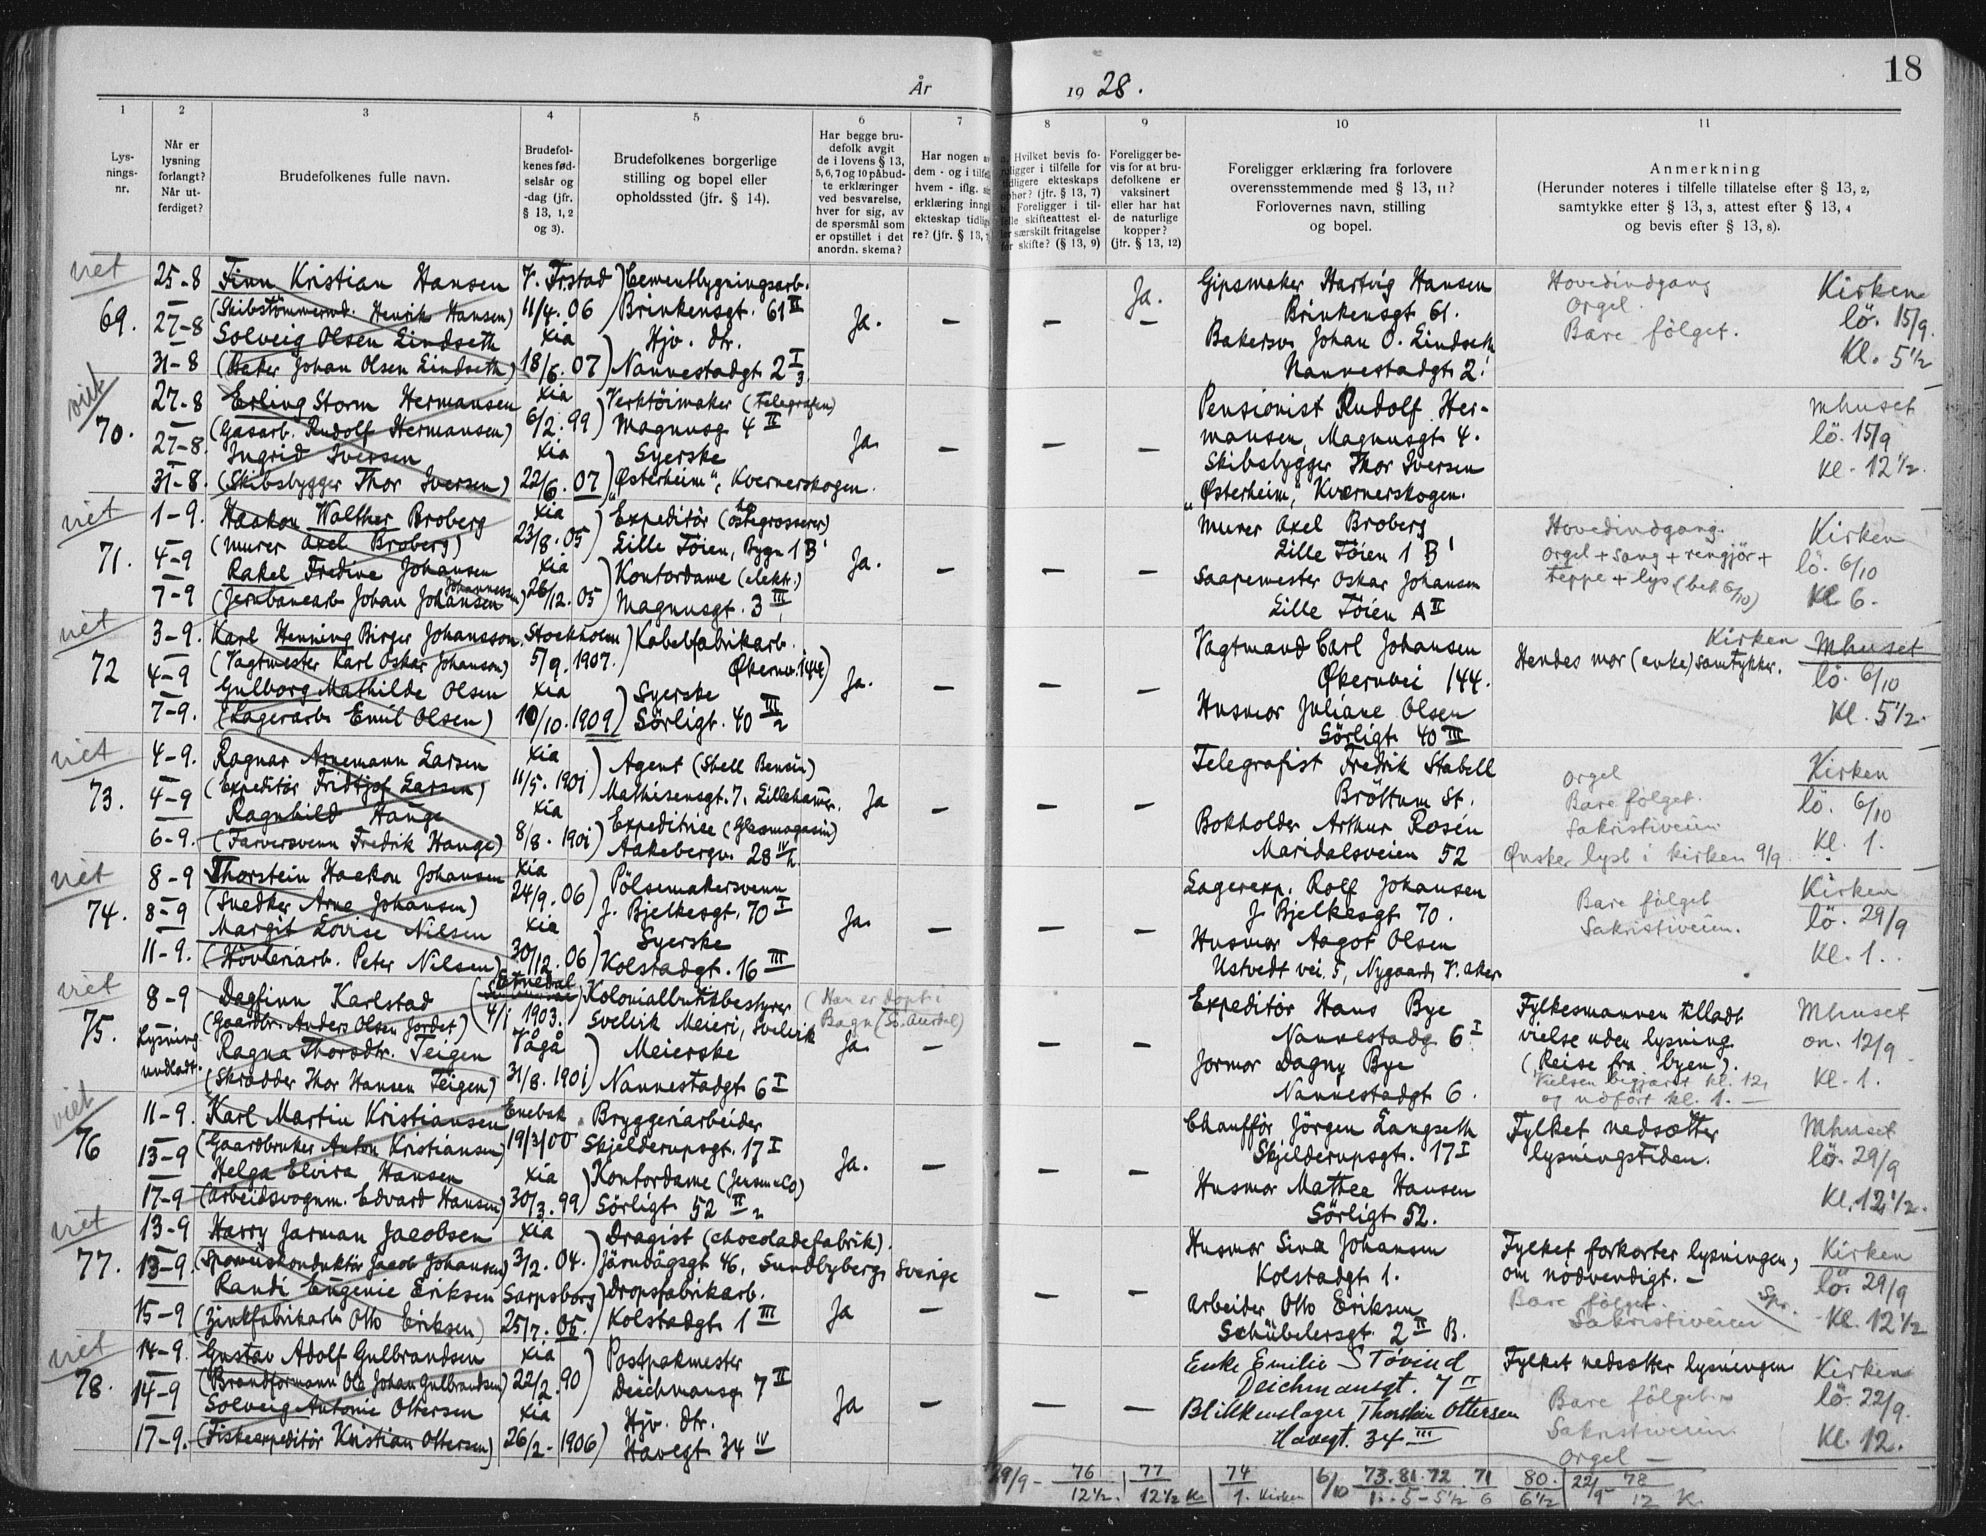 18
År 1928.
1
2
3
4
5
6
7
8
9
10
11
Lys-
nings-
nr.
Når er
lysning
forlangt?
Når ut-
ferdiget?
Brudefolkenes fulle navn.
Brudefol-
kenes fød-
selsår og
-dag (jfr.
§ 13, 1, 2
og 3).
Brudefolkenes borgerlige
stilling og bopel eller
opholdssted (jfr. § 14).
Har begge bru-
defolk avgit
de i lovens § 13,
5, 6, 7 og 10 påbud-
te erklæringer
ved besvarelse,
hver for sig, av
de spørsmål som
er opstillet i det
anordn. skema?
Har nogen av
dem - og i tilfelle
hvem - iflg. sin
erklæring inngått
ekteskap tidlige-
re? (jfr. § 13,
Hvilket bevis fo-
religger i tilfelle for
tidligere ekteskaps
ophør? (jfr. § 13, 7)
Foreligger i til-
felle skifteattest el-
ler særskilt fritagelse
for skifte? (§ 13, 9)
Foreligger be-
vis for at bru-
defolkene er
vaksinert
eller har hat
de naturlige
kopper?
(jfr. § 13, 12)
Foreligger erklæring fra forlovere
overensstemmende med § 13, 11?
Forlovernes navn, stilling
og bopel.
Anmerkning
(Herunder noteres i tilfelle tillatelse efter § 13, 2,
samtykke efter § 13, 3, attest efter § 13, 4
og bevis efter § 13, 8).
viet
69.
25-8
27-8
31-8
Finn Kristian Hansen
(Skibstömmermd. Henrik Hansen)
Solveig Olsen Lindseth
(Baker Johan Olsen Lindseth)
V. Frstad
11/4. 06
Xia
18/6. 07
Cementbygningsarb.
Brinkensgt. 61 II
Hjv. dtr.
Nannestadgt 2 I 3
Ja.
—
—
Ja.
—
Gipsmaker Hartvig Hansen
Brinkensgt 61.
Bakersv. Johan O. Lindseth
Nannestadgt 2.
Hovedindgang
Orgel.
Bare fölget.
Kirken
lö. 15/9.
Kl. 5½
viet
70.
27-8
27-8.
31-8.
Erling Storm Hermansen
(Gasarb. Rudolf Hermansen)
Ingrid Iversen
(Skibsbygger Thor Iversen)
Xia
6/2. 99
Xia
22/6. 07
Verktöimaker (Telegrafen)
Magnusg 4 II
Syerske
"Østerheim", Kvernerskogen.
Ja.
—
—
—
Pensionist Rudolf Her-
mansen, Magnusgt 4.
Skibsbygger Thor Iversen
"Østerheim", Kværnerskogen.
Mhuset
lö. 15/9
Kl. 12½.
viet
71.
1-9.
4-9
7-9
Haakon Walther Broberg
(Murer Axel Broberg)
Rakel Fredine Johansen
Johannessen
(Jernbanearb Johan Johansen)
Xia
23/8. 05
Xia
26/12. 05
Expeditör (ostegrosserer)
Lille Töien, Bygn 1 B
Kontordame (elektr.)
Magnusgt. 3 III
Ja.
—
—
—
Murer Axel Broberg
Lille Töien 1 B
Saapemester Oskar Johansen
Lille Töien A II
Hovedindgang.
Orgel + sang + rengjör +
teppe + lys (bet. 6/10)
Kirken
lö. 6/10
Kl 6.
viet
72
3-9.
4-9
7-9.
Karl Henning Birger Johansson.
(Vagtmester Karl Oskar Johanson)
Gulborg Mathilde Olsen
(Lagerarb. Emil Olsen)
Stockholm
5/9. 1907.
Xia
10/10. 1909
Kabelfabrikarb.
Økernv. 144
Syerske
Sörligt. 40 III 2
Ja.
—
—
—
Vagtmand Carl Johansen
Økernvei 144.
Husmor Juliane Olsen
Sörligt 40 III
Hendes mor (enke) samtykker.
Kirken Mhuset
lö. 6/10
Kl. 5½.
viet
73.
4-9.
4-9
6-9.
Ragnar Arnemann Larsen
(Expeditör Fridtjof Larsen)
Ragnhild Hauge
(Farversvenn Fredrik Hauge)
Xia
11/5. 1901
Xia
8/8. 1901
Agent (Shell Bensin)
Mathisensgt. 7, Lillehamer.
Expeditrice (Glasmagasin)
Aakebergv. 28 IV h
Ja
—
—
—
Telegrafist Fredrik Stabell
Bröttum St.
Bokholder Arthur Rosén
Maridalsveien 52
Orgel
Bare fölget.
Sakristiveien
Ønsker lyst i kirken 9/9
Kirken
lö. 6/10
Kl. 1.
viet
74.
8-9
8-9
11-9.
Thorstein Haakon Johansen
(Snedker Arne Johansen)
Margit Lovise Nilsen
(Hövleriarb. Peter Nilsen)
Xia
24/9. 06
Xia
30/12. 06
Pölsemakersvenn
J. Bjelkesgt. 70 I
Syerske
Kolstadgt. 16 III
Ja.
—
—
—
Lagerexp. Rolf Johansen
J. Bjelkesgt 70.
Husmor Aagot Olsen
Ustvedt vei. 5, Nygaard, V. Aker
Bare fölget
Sakristiveien.
Kirken
lö. 29/9
Kl. 1.
viet
75.
8-9
Lysning
undladt.
Dagfinn Karlstad
(Gaardbr. Anders Olsen Jordet)
Ragna Thorsdtr. Teigen
(Skrädder Thor Hansen Teigen)
Etnedal
4/1 1903.
Vågå
31/8. 1901
Kolonialbutikbestyrer
Svelvik Meieri, Svelvik
Meierske
Nannestadgt 6 I
(Han er döpt i
Bagn (Sö. Aurdal)
Ja
—
—
—
Expeditör Hans Bye
Nannestadg 6 I
Jormor Dagny Bye
Nannestadgt 6.
Fylkesmannen tilladt
vielse uden lysning
(Reise fra byen).
Vielsen begjäret kl. 12,
og udfört kl. 1. —
Mhuset
on. 12/9
Kl. 1.
viet
76
11-9.
13-9
17-9
Karl Martin Kristiansen
(Gaardbruker Anton Kristiansen)
Helga Elvira Hansen
(Arbeidsvognm. Edvard Hansen)
Enebak
19/3/00
Xia
30/3. 99
Bryggeriarbeider
Skjelderupsgt. 17 I
Kontordame (Jensen & Co)
Sörligt 52 II 2
Ja.
—
—
—
Chaufför Jörgen Langseth
Skjelderupsgt. 17 I
Husmor Mathea Hansen
Sörligt 52.
Fylket nedsætter
lysningstiden.
Mhuset
lö. 29/9
Kl. 12½.
viet
77.
13-9
13-9.
15-9
Harry Jarman Jacobsen
(Sporveiskonduktör Jacob Johansen)
Randi Eugenie Eriksen
(Zinkfabrikarb Otto Eriksen)
Xia
3/2. 04.
Sarpsborg
25/7. 05.
Dragist (chocoladefabrik).
Järndägsgt 46, Sundbyberg, Sverige
Dropsfabrikarb.
Kolstadgt 1 III
Ja
—
—
—
Husmor Sina Johansen
Kolstadgt 1.
Arbeider Otto Eriksen
Schübelersgt. 2 II B.
Fylket forkorter lysningen,
om nödvendigt. —
Bare fölget.
Sakristiveien
Spr.
Kirken
lö. 29/9
Kl. 12½
viet
78.
14-9.
14-9
17-9.
Gustav Adolf Gulbrandsen
(Brandformann Ole Johan Gulbrandsen)
Solveig Antonie Ottersen
(Fiskeexpeditör Kristian Ottersen)
Xia
22/2. 90
Xia
26/2-1906
Postpakmester
Deichmansg 7 II
Hjv. dtr.
Havegt 34 IV
Ja
—
—
—
Enke Emilie Stövind
Deichmansgt. 7 II
Blikkenslager Thorstein Ottersen
Havegt. 34 III
Fylket nedsætter lysningen
Bare fölget.
Sakristiveien
Orgel —
Kirken
lö. 22/9.
Kl. 12.
29/9 - 76 12½. 77 12½ K. 74 1. Kirken 6/10 73. 81. 72. 71 1. - 5 - 5½ 6 80. 6½ 22/9 - 78 12 K.